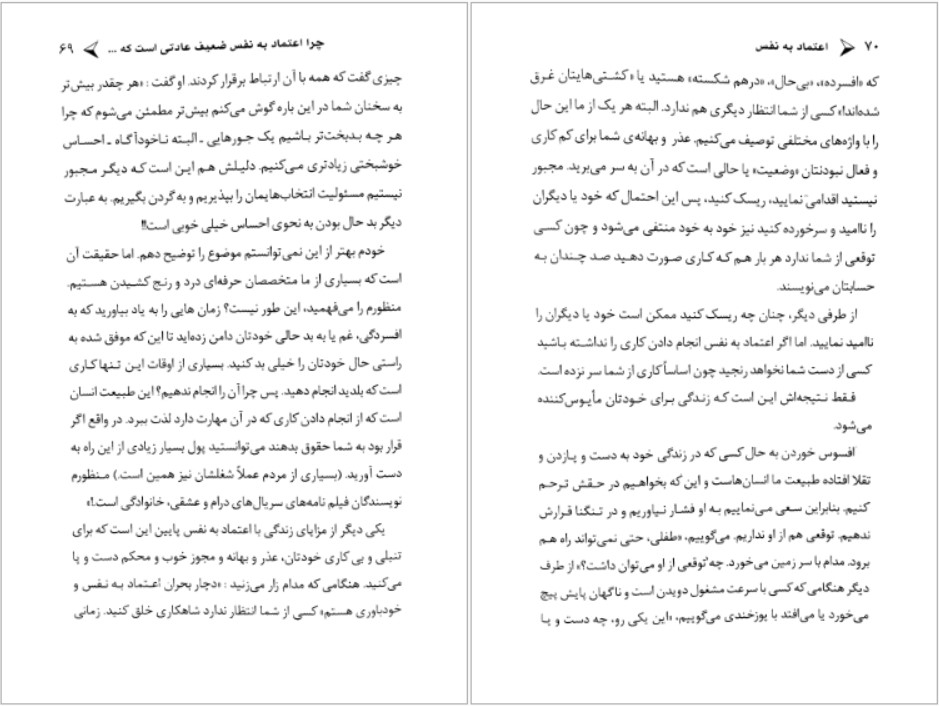 چرا اعتماد به نفس ضعیف عادتی است که ... ۶۹
چیزی گفت که همه با آن ارتباط برقرار کردند. او گفت : «هر چقدر بیش‌تر
به سخنان شما در این باره گوش می‌کنم بیش‌تر مطمئن می‌شوم که چرا
هر چه بدبخت‌تر باشیم یک جورهایی ـ البته ناخودآگاه ـ احساس
خوشبختی زیادتری می‌کنیم. دلیلش هم این است که دیگر مجبور
نیستیم مسئولیت انتخاب‌هایمان را بپذیریم و به گردن بگیریم. به عبارت
دیگر بد حال بودن به نحوی احساس خیلی خوبی است!!
خودم بهتر از این نمی‌توانستم موضوع را توضیح دهم. اما حقیقت آن
است که بسیاری از ما متخصصان حرفه‌ای درد و رنج کشیدن هستیم.
منظورم را می‌فهمید، این طور نیست؟ زمان هایی را به یاد بیاورید که به
افسردگی، غم یا به بد حالی خودتان دامن زده‌اید تا این که موفق شده به
راستی حال خودتان را خیلی بد کنید. بسیاری از اوقات این تنها کاری
است که بلدید انجام دهید. پس چرا آن را انجام ندهیم؟ این طبیعت انسان
است که از انجام دادن کاری که در آن مهارت دارد لذت ببرد. در واقع اگر
قرار بود به شما حقوق بدهند می‌توانستید پول بسیار زیادی از این راه به
دست آورید. (بسیاری از مردم عملاً شغلشان نیز همین است.) منظورم
نویسندگان فیلم نامه‌های سریال‌های درام و عشقی، خانوادگی است.!»
یکی دیگر از مزایای زندگی با اعتماد به نفس پایین این است که برای
تنبلی و بی کاری خودتان، عذر و بهانه و مجوز خوب و محکم دست و پا
می‌کنید. هنگامی که مدام زار می‌زنید : «دچار بحران اعتماد به نفس و
خودباوری هستم» کسی از شما انتظار ندارد شاهکاری خلق کنید. زمانی
۷۰ اعتماد به نفس
که «افسرده»، «بی‌حال»، «درهم شکسته» هستید یا «کشتی‌هایتان غرق
شده‌اند!» کسی از شما انتظار دیگری هم ندارد. البته هر یک از ما این حال
را با واژه‌های مختلفی توصیف می‌کنیم. عذر و بهانه‌ی شما برای کم کاری
و فعال نبودنتان «وضعیت» یا حالی است که در آن به سر می‌برید. مجبور
نیستید اقدامی نمایید، ریسک کنید، پس این احتمال که خود یا دیگران
را ناامید و سرخورده کنید نیز خود به خود منتفی می‌شود و چون کسی
توقعی از شما ندارد هر بار هم که کاری صورت دهید صد چندان به
حسابتان می‌نویسند.
از طرفی دیگر، چنان چه ریسک کنید ممکن است خود یا دیگران را
ناامید نمایید. اما اگر اعتماد به نفس انجام دادن کاری را نداشته باشید
کسی از دست شما نخواهد رنجید چون اساساً کاری از شما سر نزده است.
فقط نتیجه‌اش این است که زندگی برای خودتان مأیوس‌کننده
می‌شود.
افسوس خوردن به حال کسی که در زندگی خود به دست و پازدن و
تقلا افتاده طبیعت ما انسان‌هاست و این که بخواهیم در حقش ترحم
کنیم. بنابراین سعی می‌نماییم به او فشار نیاوریم و در تنگنا قرارش
ندهیم. توقعی هم از او نداریم. می‌گوییم، «طفلی، حتی نمی‌تواند راه هم
برود. مدام با سر زمین می‌خورد. چه توقعی از او می‌توان داشت؟» از طرف
دیگر هنگامی که کسی با سرعت مشغول دویدن است و ناگهان پایش پیچ
می‌خورد یا می‌افتد با پوزخندی می‌گوییم، «این یکی رو، چه دست و پا